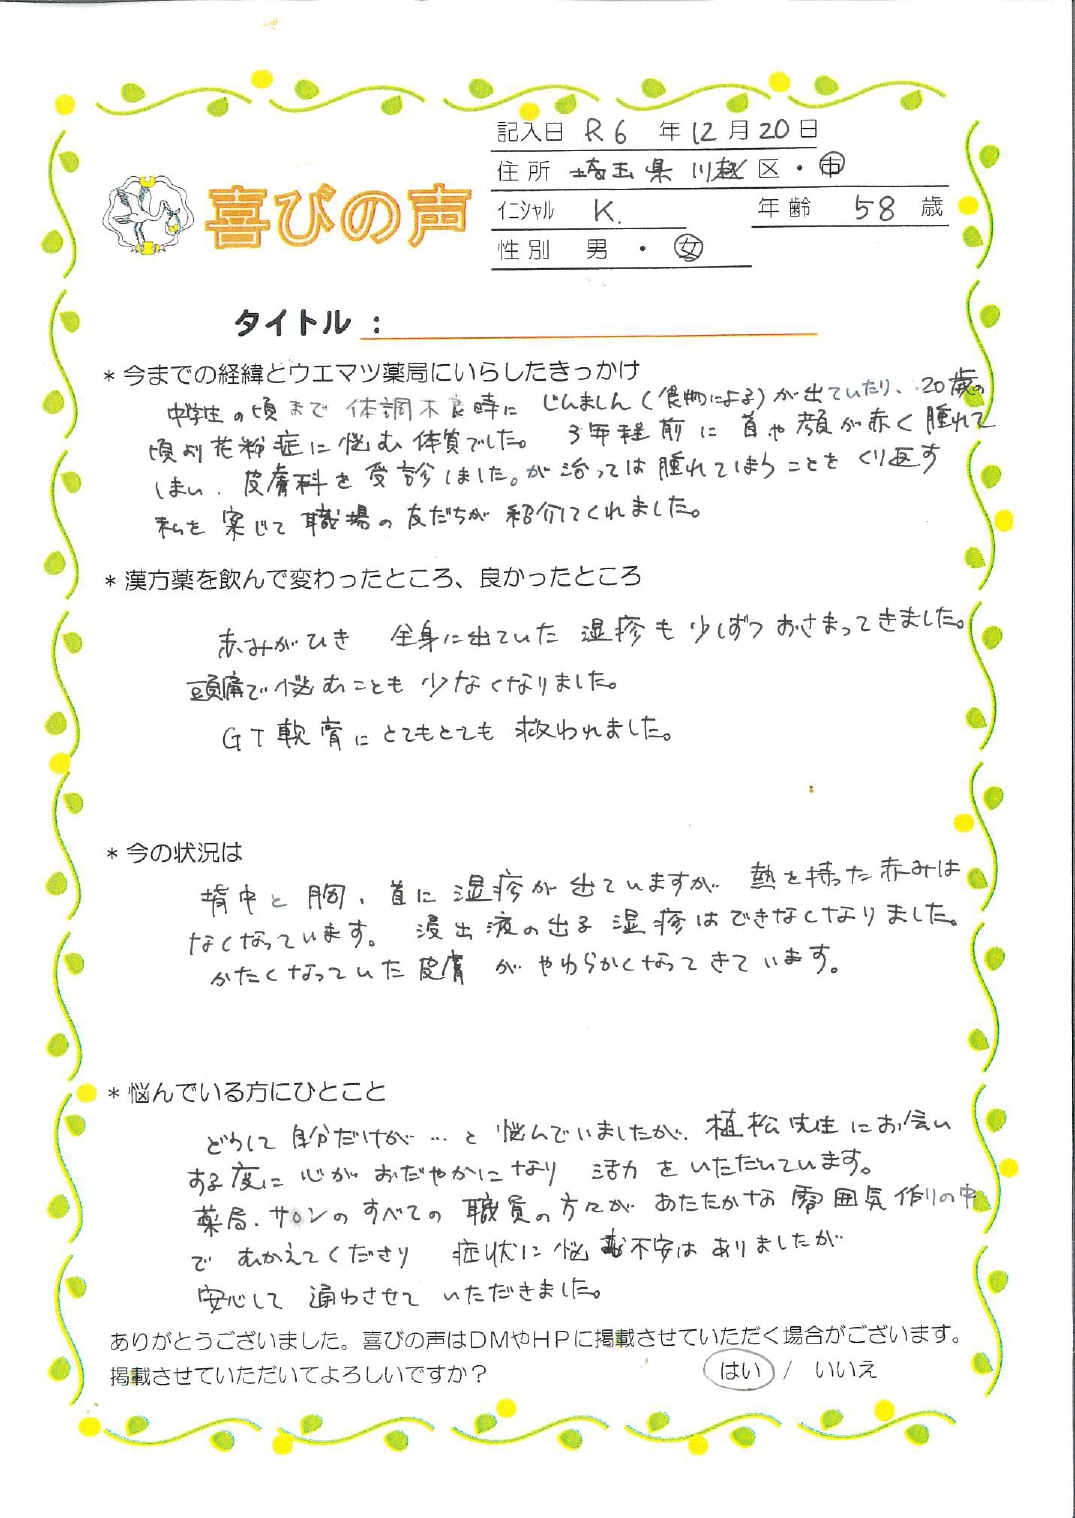 記入日 R6 年 12 月 20 日
住所 埼玉県 川越 区・市
喜びの声
イニシャル K. 年齢 58 歳
性別 男 ・ 女
タイトル：
＊今までの経緯とウエマツ薬局にいらしたきっかけ
中学生の頃まで 体調不良時に じんましん(食物による)が出ていたり、20歳の
頃より花粉症に悩む体質でした。 3年程前に首や顔が赤く腫れて
しまい、皮膚科を受診しました。が治っては腫れてしまうことをくり返す
私を案じて職場の友だちが紹介してくれました。
＊漢方薬を飲んで変わったところ、良かったところ
赤みがひき 全身に出ていた湿疹も少しずつおさまってきました。
頭痛で悩むことも少なくなりました。
GT軟膏にとてもとても救われました。
＊今の状況は
背中と胸、首に湿疹が出ていますが 熱を持った赤みは
なくなっています。 浸出液の出る湿疹はできなくなりました。
かたくなっていた皮膚がやわらかくなってきています。
＊悩んでいる方にひとこと
どうして自分だけが…と悩んでいましたが、植松先生にお会い
する度に心がおだやかになり 活力をいただいています。
薬局、サロンのすべての職員の方々があたたかな雰囲気作りの中
でむかえてくださり 症状に悩む不安はありましたが
安心して通わさせていただきました。
ありがとうございました。喜びの声はDMやHPに掲載させていただく場合がございます。
掲載させていただいてよろしいですか？ はい / いいえ